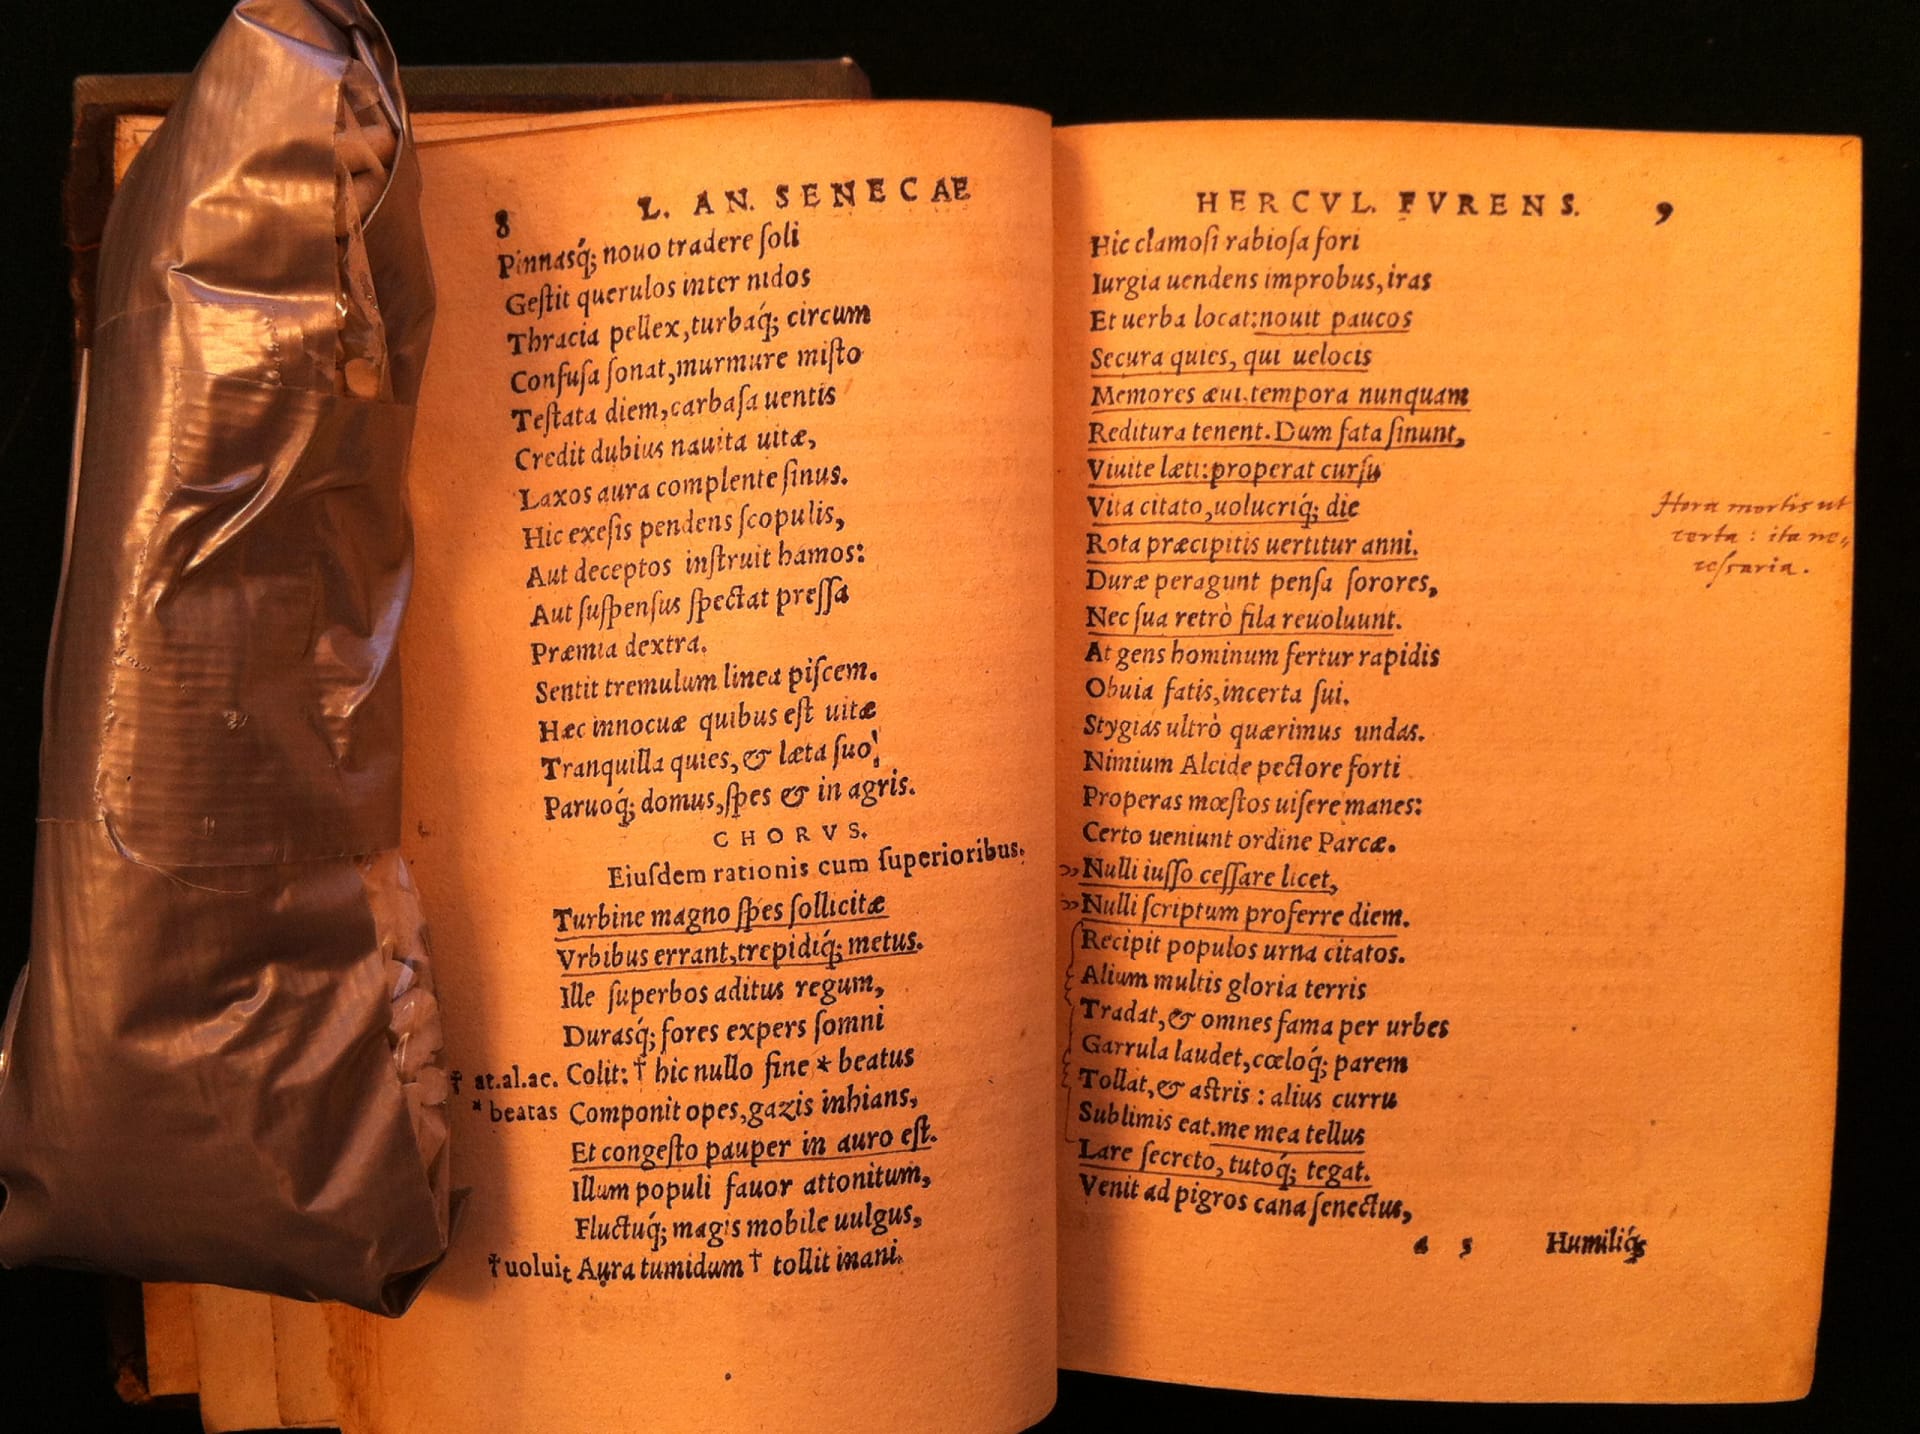 8 L. AN. SENECAE
Pinnasq́; nouo tradere ſoli
Geſtit querulos inter nidos
Thracia pellex, turbaq́; circum
Confuſa ſonat, murmure miſto
Teſtata diem, carbaſa uentis
Credit dubius nauita uitæ,
Laxos aura complente ſinus.
Hic exeſis pendens ſcopulis,
Aut deceptos inſtruit hamos:
Aut ſuſpenſus ſpectat preſſa
Præmia dextra.
Sentit tremulum linea piſcem.
Hæc innocuæ quibus eſt uitæ
Tranquilla quies, & læta ſuo,
Paruoq́; domus, ſpes & in agris.
CHORVS.
Eiuſdem rationis cum ſuperioribus.
Turbine magno ſpes ſollicitæ
Vrbibus errant, trepidiq́; metus.
Ille ſuperbos aditus regum,
Durasq́; fores expers ſomni
† at.al.ac. Colit: † hic nullo fine * beatus
* beatas Componit opes, gazis inhians,
Et congeſto pauper in auro eſt.
Illum populi fauor attonitum,
Fluctuq́; magis mobile uulgus,
† uoluit Aura tumidum † tollit inani.
HERCVL. FVRENS. 9
Hic clamoſi rabioſa fori
Iurgia uendens improbus, iras
Et uerba locat: nouit paucos
Secura quies, qui uelocis
Memores æui tempora nunquam
Reditura tenent. Dum fata ſinunt,
Viuite læti: properat curſu
Vita citato, uolucriq́; die
Rota præcipitis uertitur anni.
Hora mortis ut
certa: ita ne,,
ceſsaria.
Duræ peragunt penſa ſorores,
Nec ſua retrò fila reuoluunt.
At gens hominum fertur rapidis
Obuia fatis, incerta ſui.
Stygias ultrò quærimus undas.
Nimium Alcide pectore forti
Properas mœſtos uiſere manes:
Certo ueniunt ordine Parcæ.
» Nulli iuſſo ceſſare licet,
» Nulli ſcriptum proferre diem.
Recipit populos urna citatos.
Alium multis gloria terris
Tradat, & omnes fama per urbes
Garrula laudet, cœloq́; parem
Tollat, & aſtris: alius curru
Sublimis eat. me mea tellus
Lare ſecreto, tutoq́; tegat.
Venit ad pigros cana ſenectus,
a 5 Humiliq́;